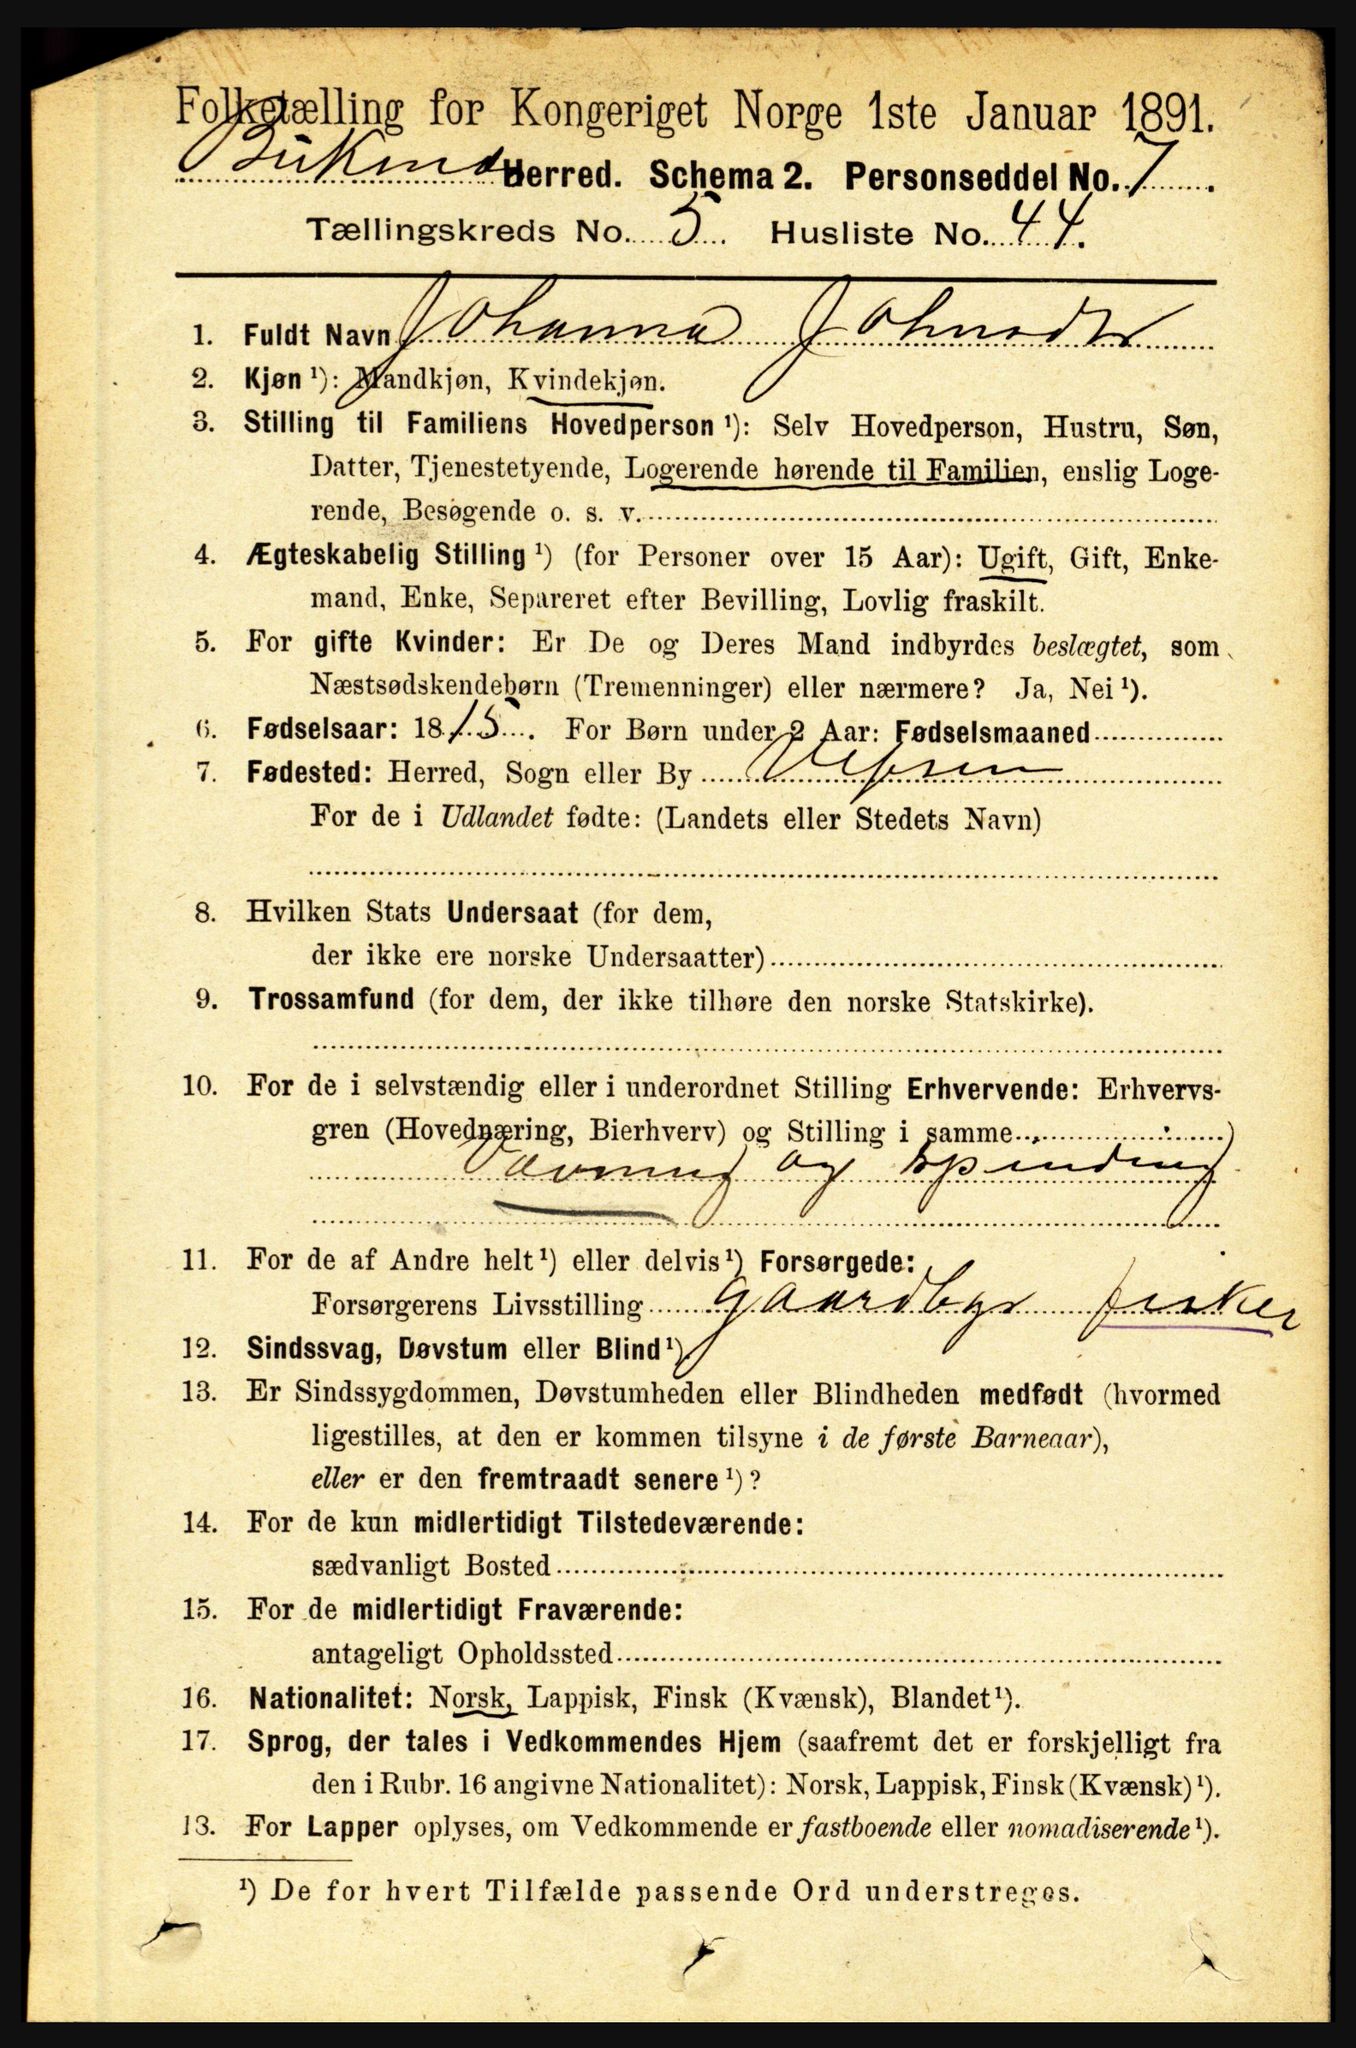 Folketælling for Kongeriget Norge 1ste Januar 1891.
Herred. Schema 2. Personseddel No. 7.
Tællingskreds No. 5. Husliste No. 44.
1. Fuldt Navn Johanna Johnsdtr
2. Kjøn ¹): Mandkjøn, Kvindekjøn.
3. Stilling til Familiens Hovedperson ¹): Selv Hovedperson, Hustru, Søn,
Datter, Tjenestetyende, Logerende hørende til Familien, enslig Loge-
rende, Besøgende o. s. v.
4. Ægteskabelig Stilling ¹) (for Personer over 15 Aar): Ugift, Gift, Enke-
mand, Enke, Separeret efter Bevilling, Lovlig fraskilt.
5. For gifte Kvinder: Er De og Deres Mand indbyrdes beslægtet, som
Næstsødskendebørn (Tremenninger) eller nærmere? Ja, Nei ¹).
6. Fødselsaar: 1815. For Børn under 2 Aar: Fødselsmaaned
7. Fødested: Herred, Sogn eller By Vefsen
For de i Udlandet fødte: (Landets eller Stedets Navn)
8. Hvilken Stats Undersaat (for dem,
der ikke ere norske Undersaatter)
9. Trossamfund (for dem, der ikke tilhøre den norske Statskirke).
10. For de i selvstændig eller i underordnet Stilling Erhvervende: Erhvervs-
gren (Hovednæring, Bierhverv) og Stilling i samme
Vævning og spinding
11. For de af Andre helt ¹) eller delvis ¹) Forsørgede:
Forsørgerens Livsstilling gaardbgr fisker
12. Sindssvag, Døvstum eller Blind ¹).
13. Er Sindssygdommen, Døvstumheden eller Blindheden medfødt (hvormed
ligestilles, at den er kommen tilsyne i de første Barneaar),
eller er den fremtraadt senere ¹)?
14. For de kun midlertidigt Tilstedeværende:
sædvanligt Bosted
15. For de midlertidigt Fraværende:
antageligt Opholdssted
16. Nationalitet: Norsk, Lappisk, Finsk (Kvænsk), Blandet ¹).
17. Sprog, der tales i Vedkommendes Hjem (saafremt det er forskjelligt fra
den i Rubr. 16 angivne Nationalitet): Norsk, Lappisk, Finsk (Kvænsk) ¹).
13. For Lapper oplyses, om Vedkommende er fastboende eller nomadiserende ¹).
¹) De for hvert Tilfælde passende Ord understreges.